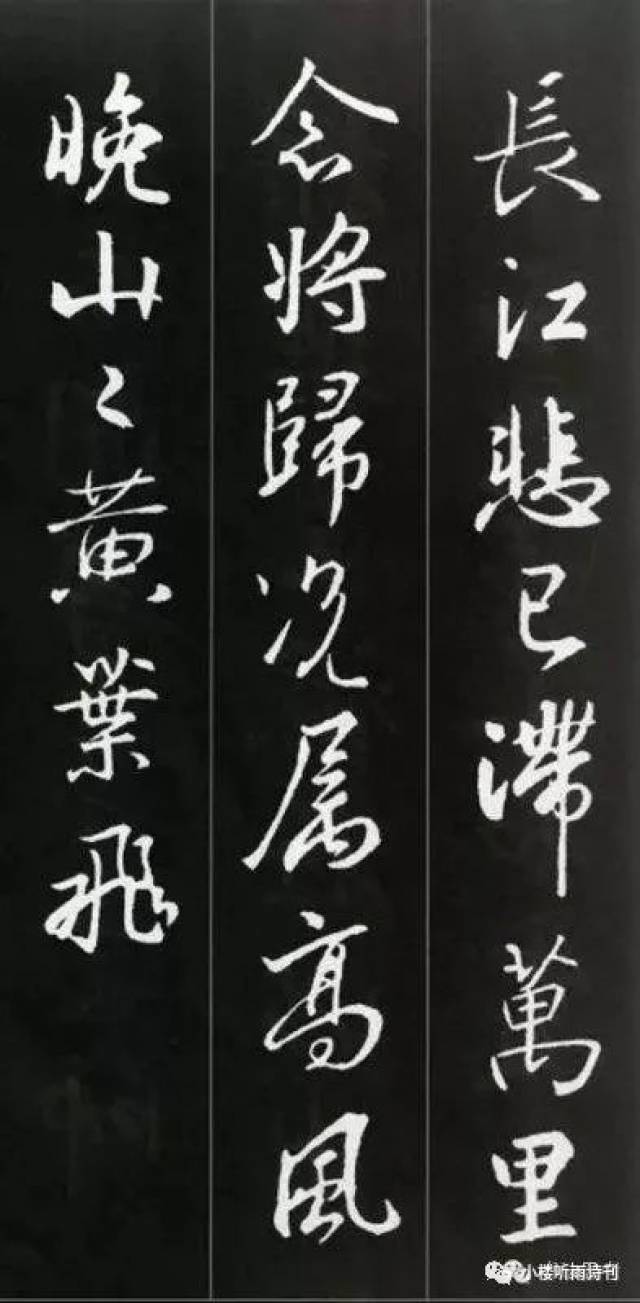 長江悲已滯萬里
念將歸况属高風
晚山〻黄葉飛
小楼听雨诗刊